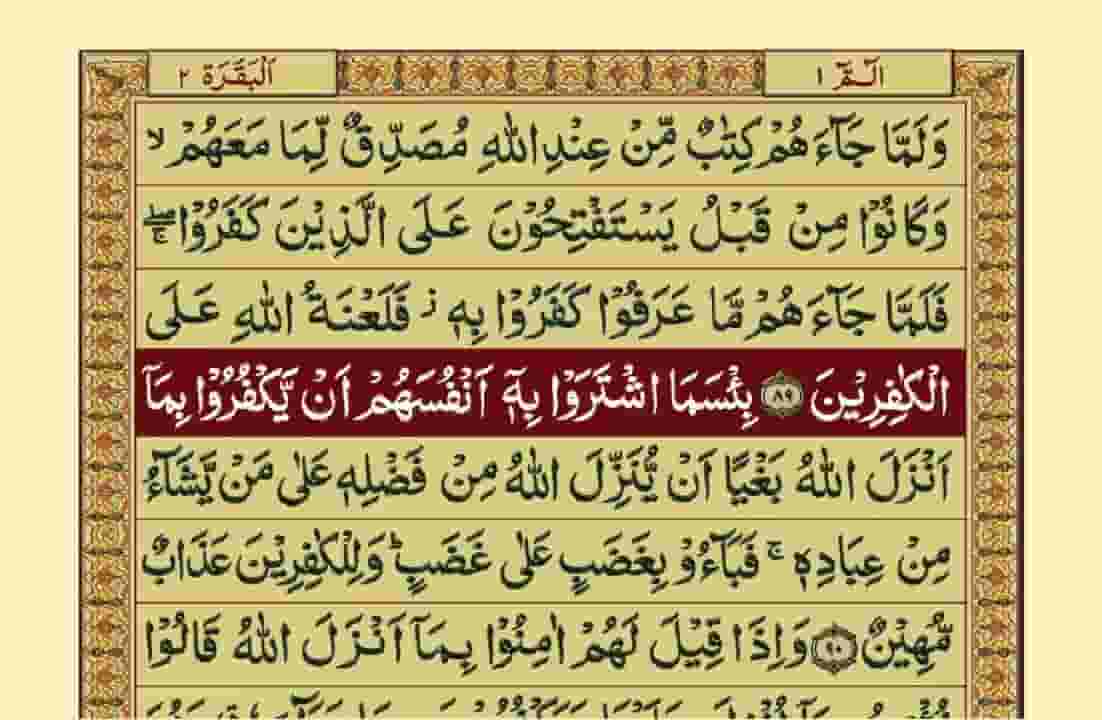 الٓمّٓ ١
اَلْبَقَرَة ٢
وَلَمَّا جَآءَهُمْ كِتٰبٌ مِّنْ عِنْدِ اللّٰهِ مُصَدِّقٌ لِّمَا مَعَهُمْ ۙ
وَكَانُوْا مِنْ قَبْلُ يَسْتَفْتِحُوْنَ عَلَى الَّذِيْنَ كَفَرُوْا ۖۚ
فَلَمَّا جَآءَهُمْ مَّا عَرَفُوْا كَفَرُوْا بِهٖ ز فَلَعْنَةُ اللّٰهِ عَلَى
الْكٰفِرِيْنَ ﴿٨٩﴾ بِئْسَمَا اشْتَرَوْا بِهٖٓ اَنْفُسَهُمْ اَنْ يَّكْفُرُوْا بِمَآ
اَنْزَلَ اللّٰهُ بَغْيًا اَنْ يُّنَزِّلَ اللّٰهُ مِنْ فَضْلِهٖ عَلٰى مَنْ يَّشَآءُ
مِنْ عِبَادِهٖ ۚ فَبَآءُوْ بِغَضَبٍ عَلٰى غَضَبٍ ؕ وَلِلْكٰفِرِيْنَ عَذَابٌ
مُّهِيْنٌ ﴿٩٠﴾ وَاِذَا قِيْلَ لَهُمْ اٰمِنُوْا بِمَآ اَنْزَلَ اللّٰهُ قَالُوْا